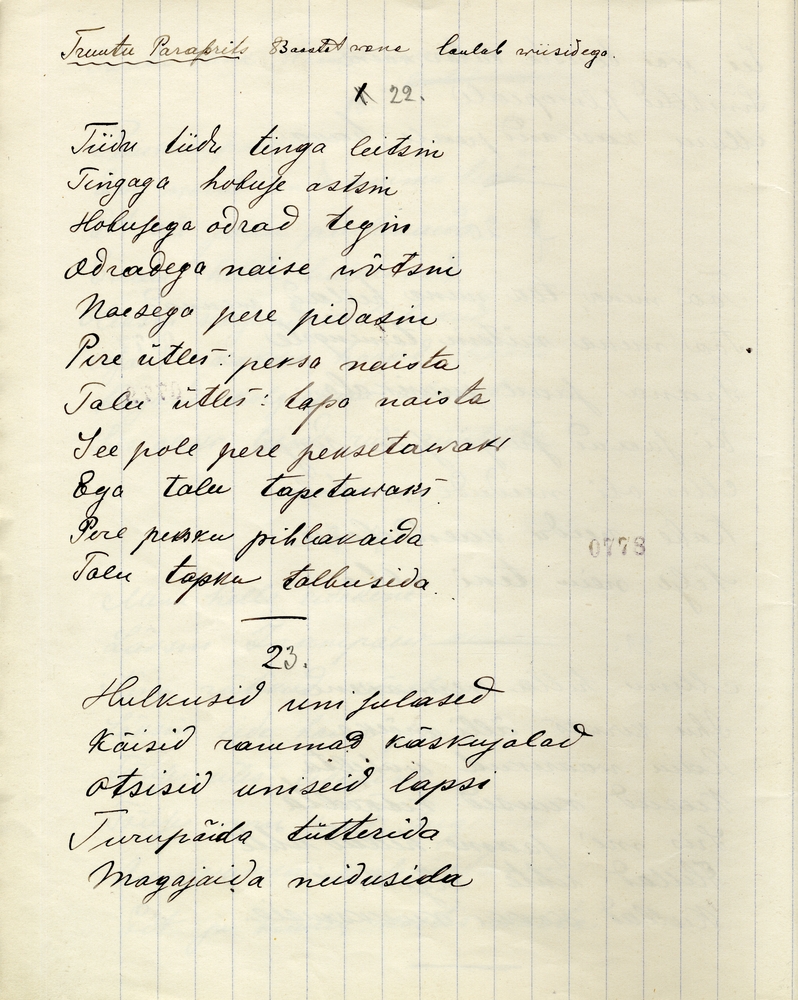 Truutu Paraprits 83 aastat wana laulab wiisidega.
X 22.
Tiidu tiidu tinga leitsin
Tingaga hobuse ostsin
Hobusega odrad tegin
Odradega naise wõtsin
Naesega pere pidasin
Pere ütles: peksa naista
Talu ütles: tapa naista
See pole pere peksetawaks
Ega talu tapetawaks.
Pere peksku pihlakaida
Talu tapku talbusida.
0778
23.
Hulkusid uni julased
Käisid rammad käskujalad
Otsisid uniseid lapsi
Turupäida tütterida
Magajaida neidusida